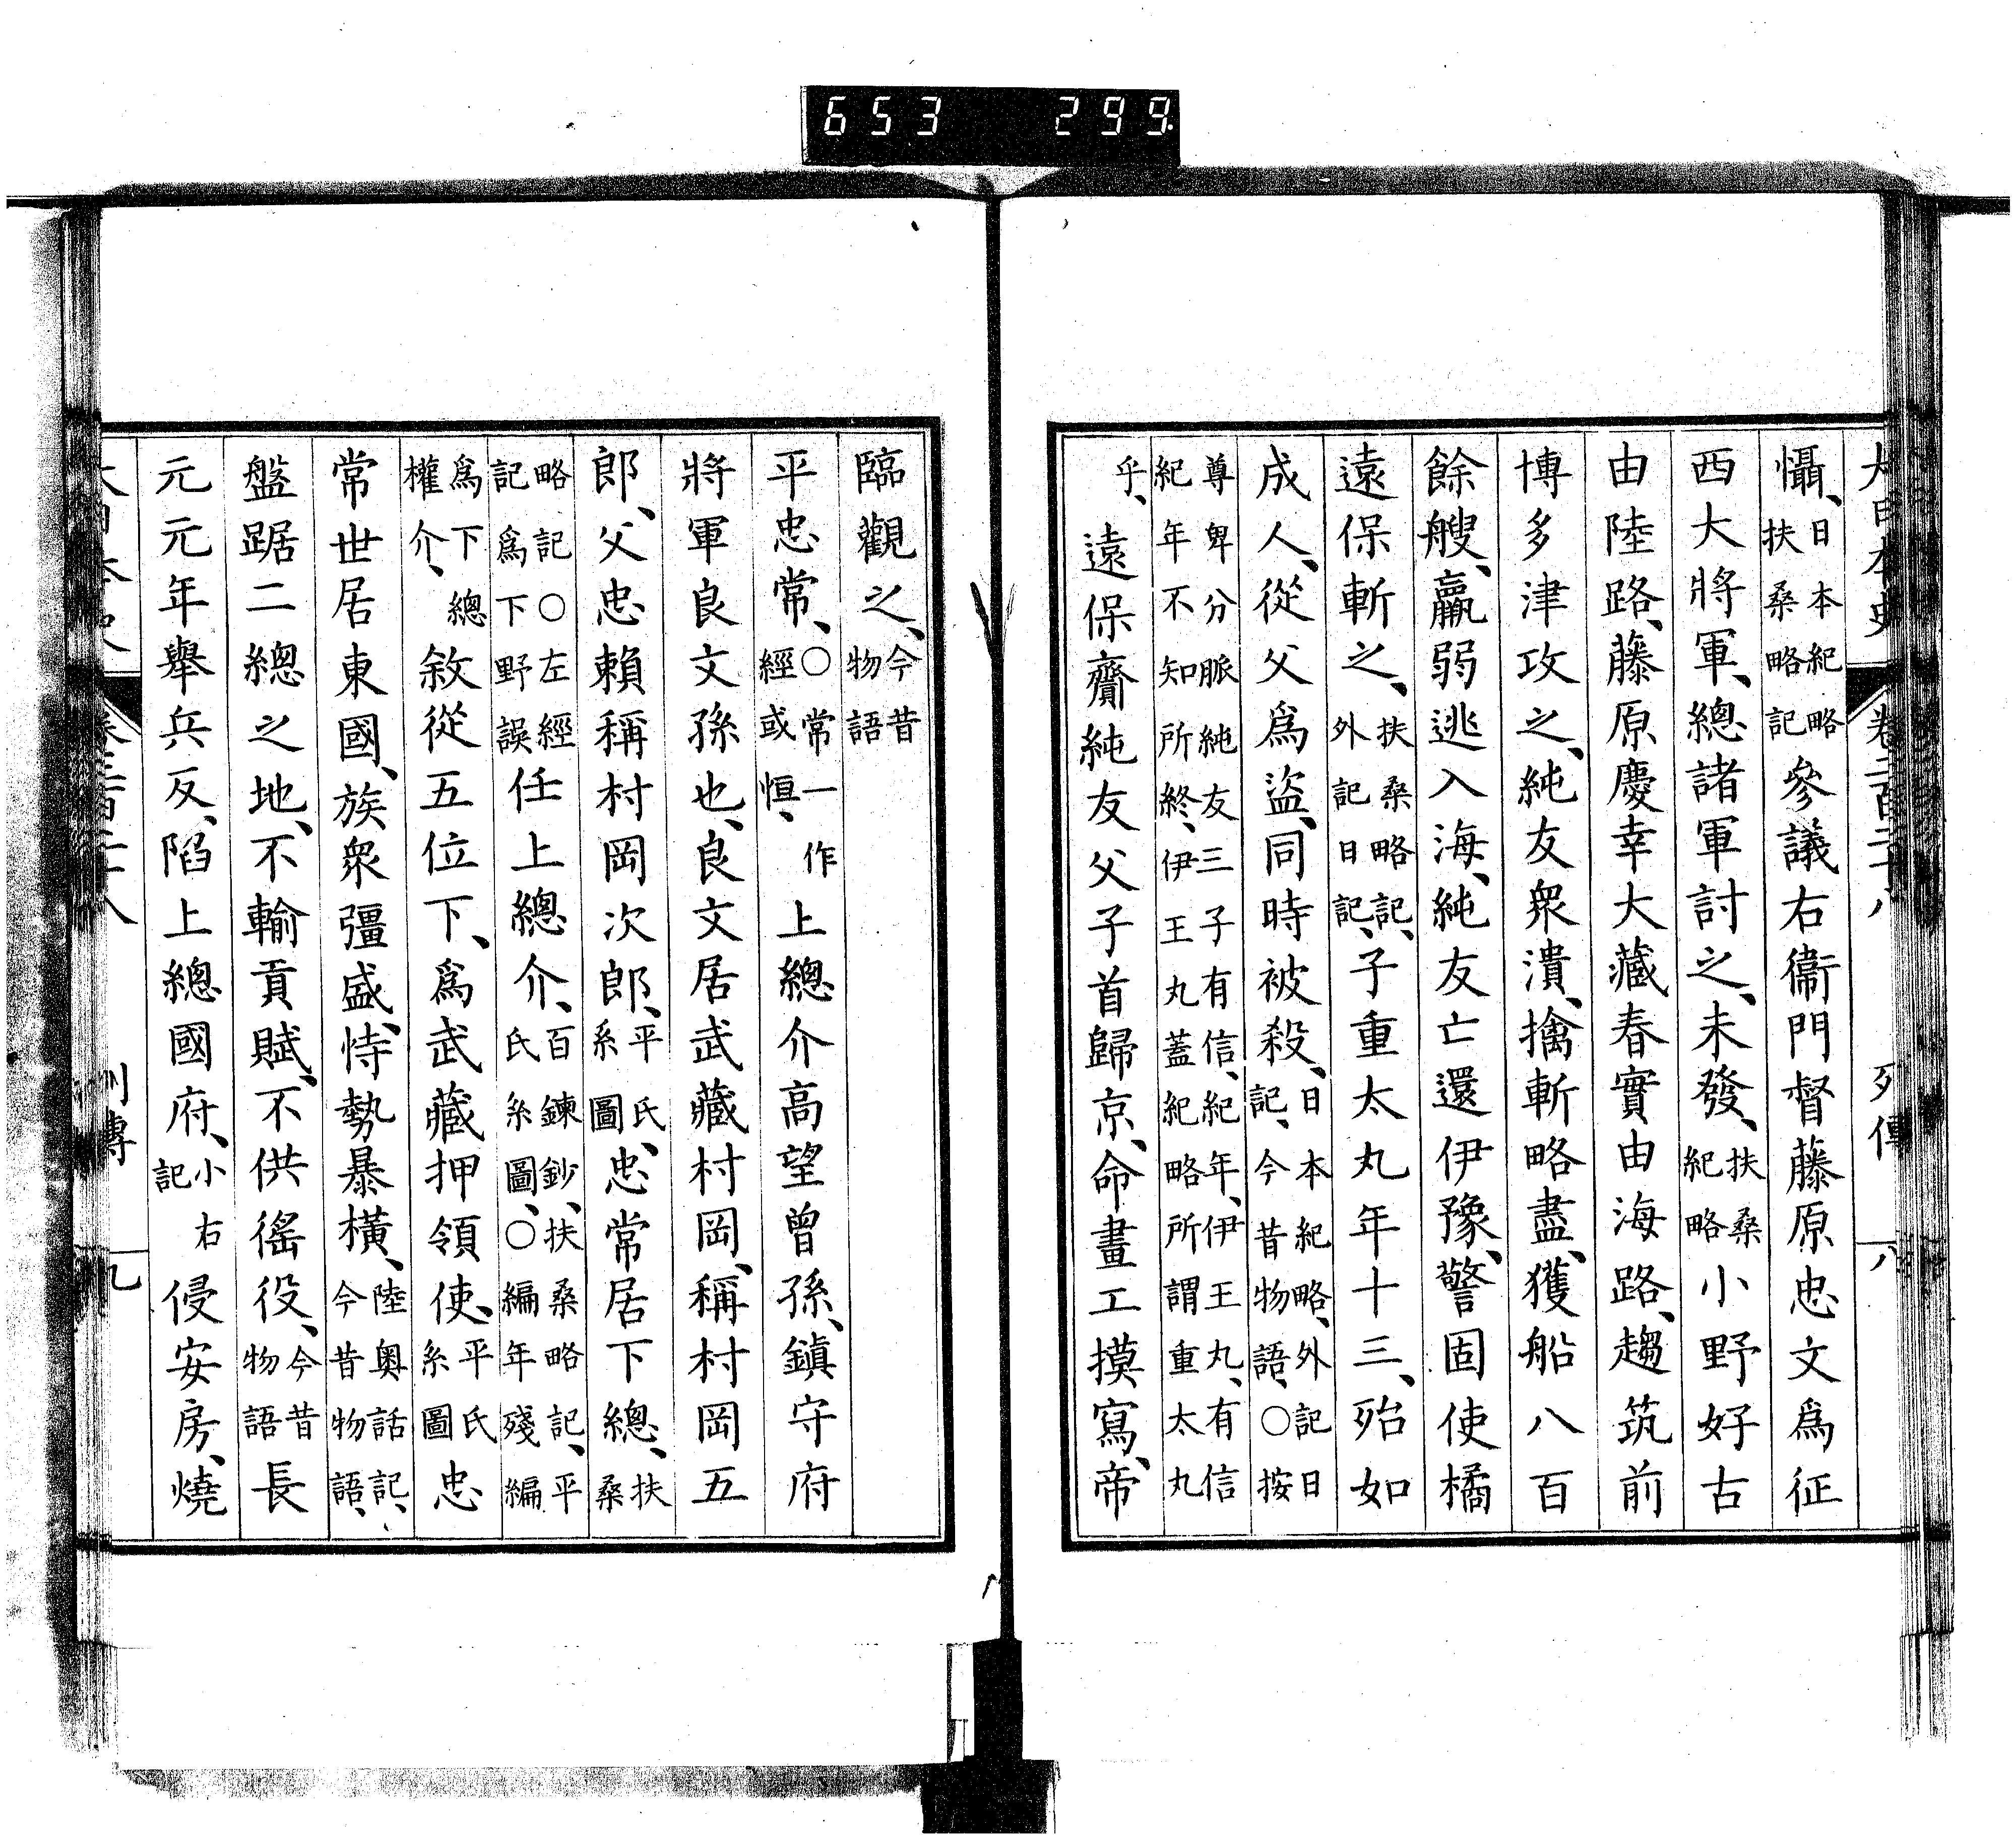 653 299
大日本史 卷二百二十八 列傳 八
懾、日本紀略扶桑略記參議右衞門督藤原忠文爲征
西大將軍、總諸軍討之、未發、扶桑紀略小野好古
由陸路、藤原慶幸大藏春實由海路、趨筑前
博多津攻之、純友衆潰、擒斬略盡、獲船八百
餘艘、羸弱逃入海、純友亡還伊豫、警固使橘
遠保斬之、扶桑略記、外記日記、子重太丸年十三、殆如
成人、從父爲盜、同時被殺、日本紀略、外記日記、今昔物語、〇按
尊卑分脈純友三子有信、紀年、伊王丸、有信紀年不知所終、伊王丸蓋紀略所謂重太丸
乎、遠保齎純友父子首歸京、命畫工摸寫、帝
臨觀之、今昔物語
平忠常、〇常一作經或恒、上總介高望曾孫、鎭守府
將軍良文孫也、良文居武藏村岡、稱村岡五
郎、父忠賴稱村岡次郎、平氏系圖、忠常居下總、扶桑
略記〇左經記爲下野誤任上總介、百鍊鈔、扶桑略記、平氏系圖、〇編年殘編
爲下總權介、敘從五位下、爲武藏押領使、平氏系圖忠
常世居東國、族衆彊盛、恃勢暴橫、陸奧話記、今昔物語、
盤踞二總之地、不輸貢賦、不供徭役、今昔物語長
元元年舉兵反、陷上總國府、小右記侵安房、燒
大日本史 卷二百二十八 列傳 九